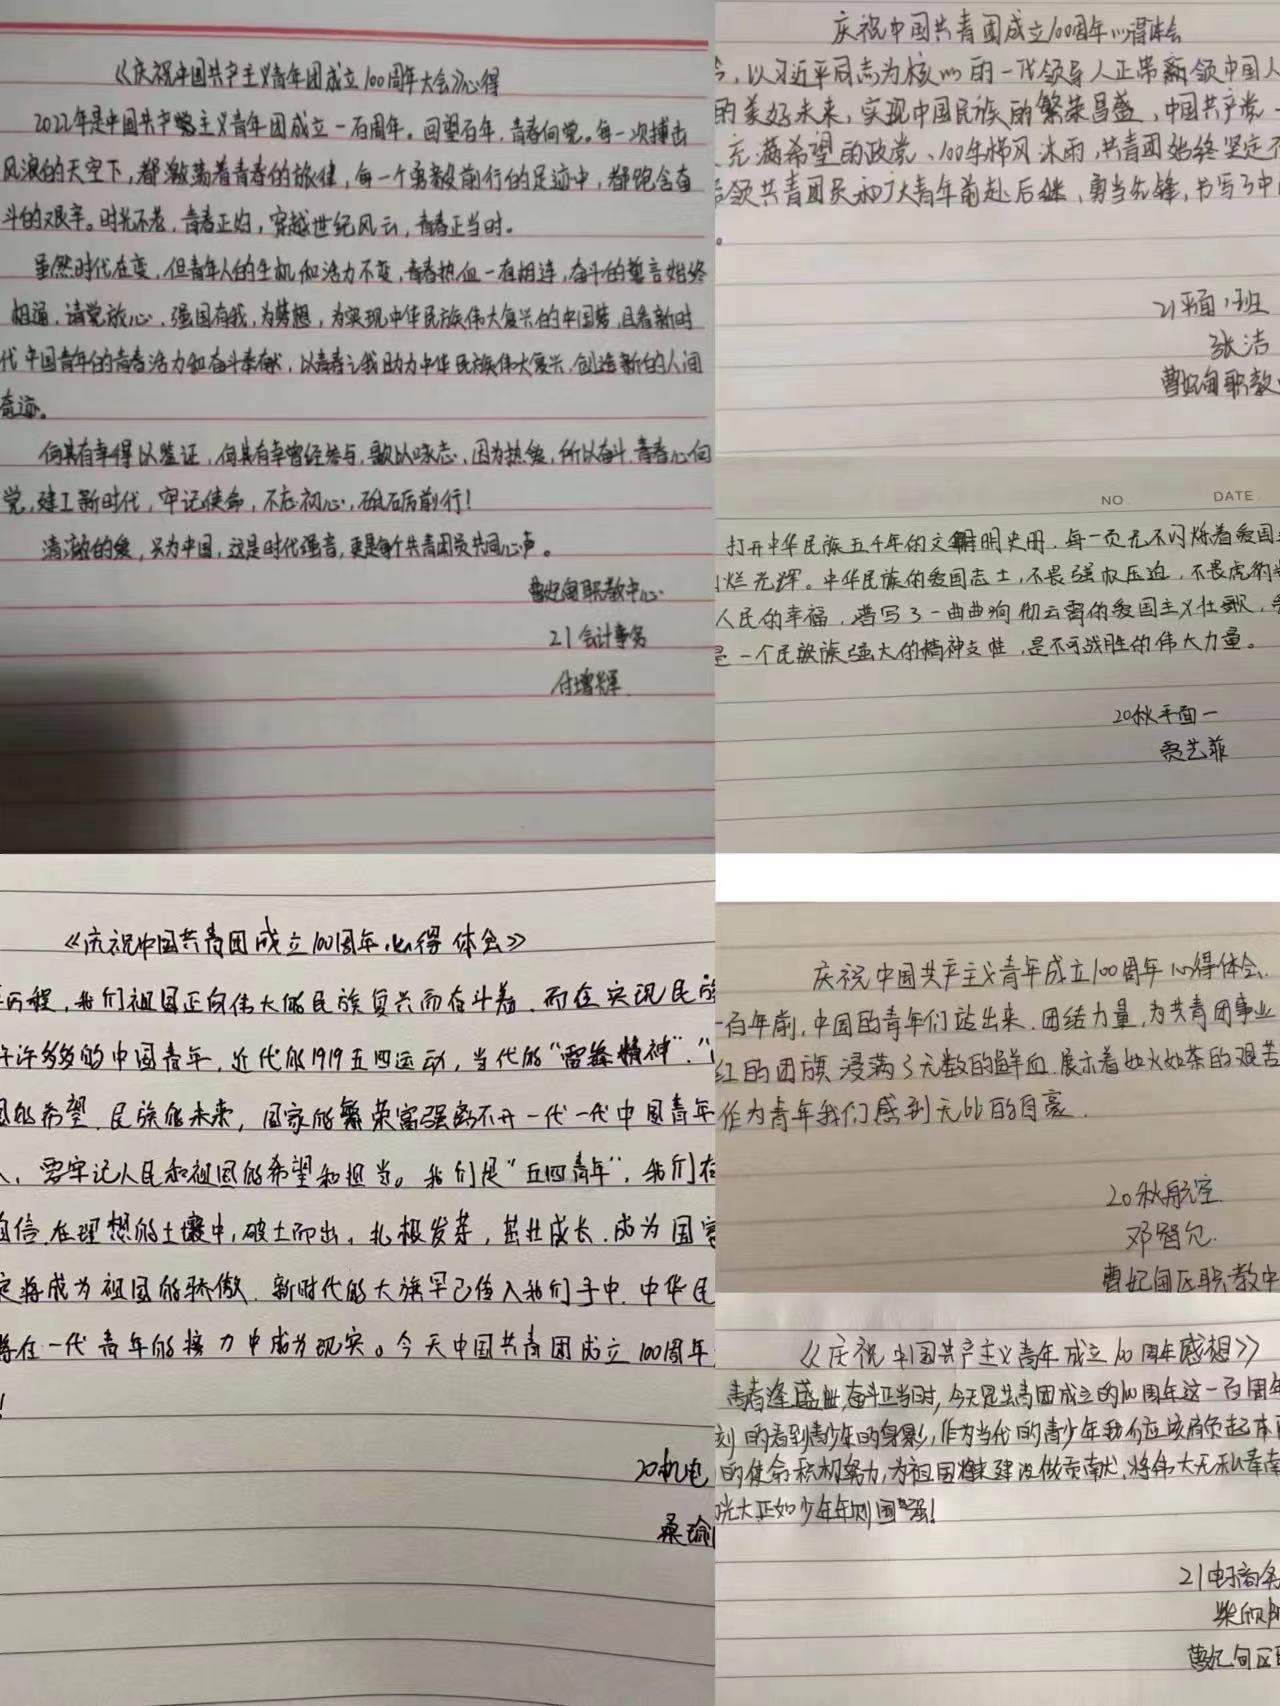 《庆祝中国共产主义青年团成立100周年大会》心得
2022年是中国共产主义青年团成立一百周年。回望百年,青春向党。每一次搏击
风浪的天空下,都激荡着青春的旋律,每一个勇毅前行的足迹中,都饱含奋
斗的艰辛。时光不老,青春正好,穿越世纪风云,青春正当时。
虽然时代在变,但青年人的生机和活力不变,青春热血一在相连,奋斗的誓言始终
相通,请党放心,强国有我,为梦想,为实现中华民族伟大复兴的中国梦,且看新时
代中国青年的青春活力和奋斗奉献,以青春之我助力中华民族伟大复兴,创造新的人间
奇迹。
何其有幸得以鉴证,何其有幸曾经参与,歌以咏志,因为热爱,所以奋斗,青春心向
党,建工新时代,牢记使命,不忘初心,砥砺前行!
清澈的爱,只为中国,这是时代强音,更是每个共青团员共同心声。
曹妃甸职教中心
21会计事务
付增辉
庆祝中国共青团成立100周年心得体会
,以习近平同志为核心的一代领导人正带领中国人
的美好未来,实现中国民族的繁荣昌盛,中国共产党
充满希望的政党、100年栉风沐雨,共青团始终坚定不
领共青团员和广大青年前赴后继,勇当先锋,书写了中
。
21平面1班
张洁
曹妃甸职教
NO. DATE.
打开中华民族五千年的文明史册,每一页无不闪烁着爱国
烂光辉。中华民族的爱国志士,不畏强权压迫,不畏虎豹
人民的幸福,谱写了一曲曲响彻云霄的爱国主义壮歌,
是一个民族强大的精神支柱,是不可战胜的伟大力量。
20秋平面一
贾艺菲
《庆祝中国共青团成立100周年心得体会》
历程,我们祖国正向伟大的民族复兴而奋斗着,而在实现民族
许许多多的中国青年,近代的1919五四运动,当代的“雷锋精神”,“
国的希望,民族的未来,国家的繁荣富强离不开一代一代中国青年
人,要牢记人民和祖国的希望和担当。我们是“五四青年”,我们在
自信,在理想的土壤中,破土而出,扎根发芽,茁壮成长,成为国家
定将成为祖国的骄傲,新时代的大旗早已传入我们手中,中华民
将在一代青年的接力中成为现实。今天中国共青团成立100周年
!
20机电
桑瑜
庆祝中国共产主义青年成立100周年心得体会.
一百年前,中国的青年们站出来,团结力量,为共青团事业
红的团旗浸满了无数的鲜血,展示着如火如荼的艰苦
作为青年我们感到无比的自豪.
20秋航空
邓智允
曹妃甸区职教中
《庆祝中国共产主义青年成立100周年感想》
青春逢盛世,奋斗正当时,今天是共青团成立的100周年这一百周年
刻的看到青少年的身影,作为当代的青少年我们应该肩负起本
的使命积极努力,为祖国将来建设做贡献,将伟大无私奉献
光大正如少年年则国强!
21电子商务
柴欣
曹妃甸区